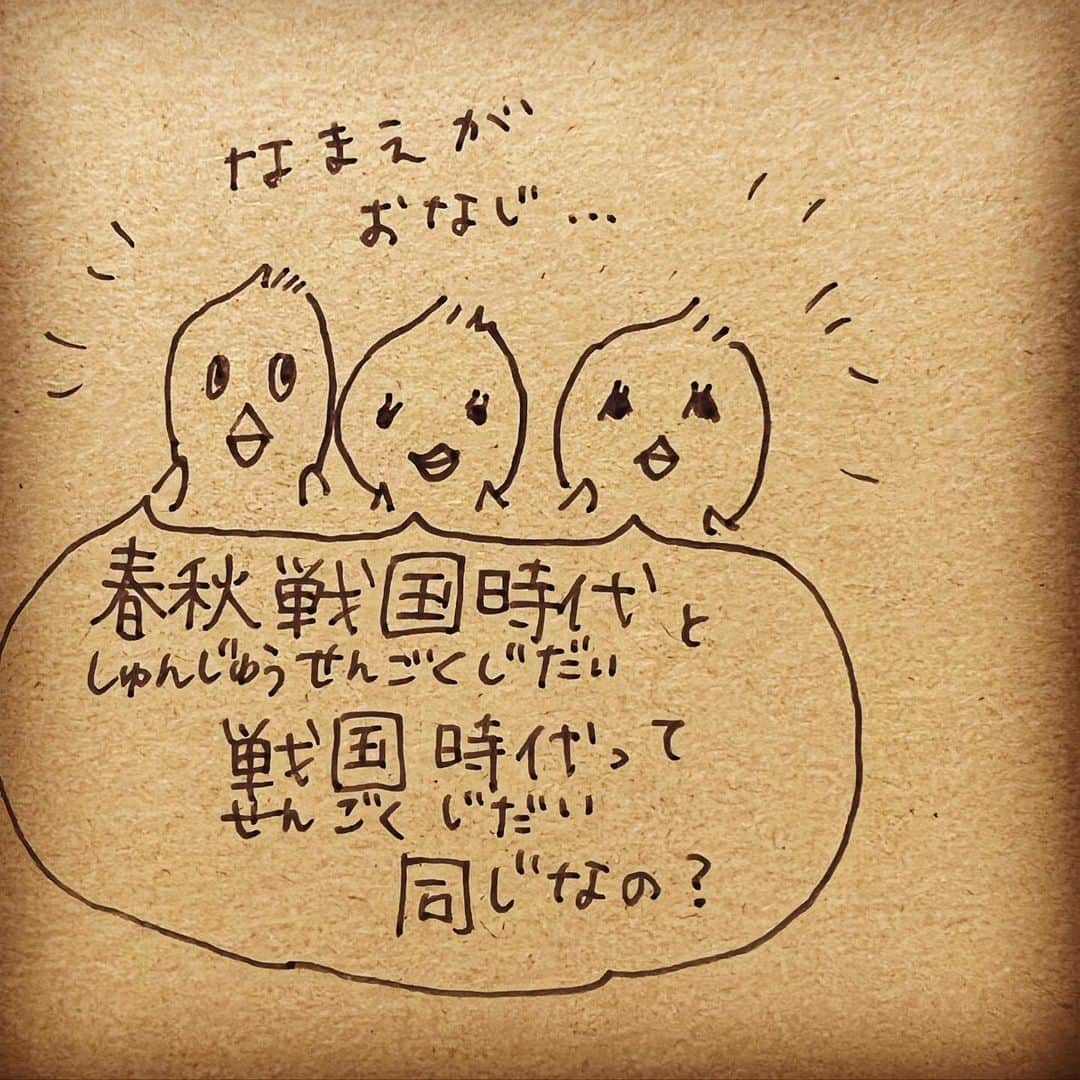 なまえが
おなじ…
春秋戦国時代と
しゅんじゅうせんごくじだい
戦国時代って
せんごくじだい
同じなの?